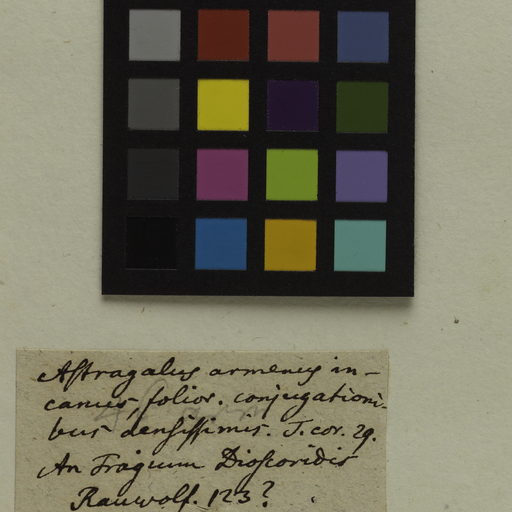 Astragalus armenus in-
canus, folior. conjugationi-
bus densissimis. T. cor. 29.
An Tragum Dioscoridis
Rauwolf. 123?